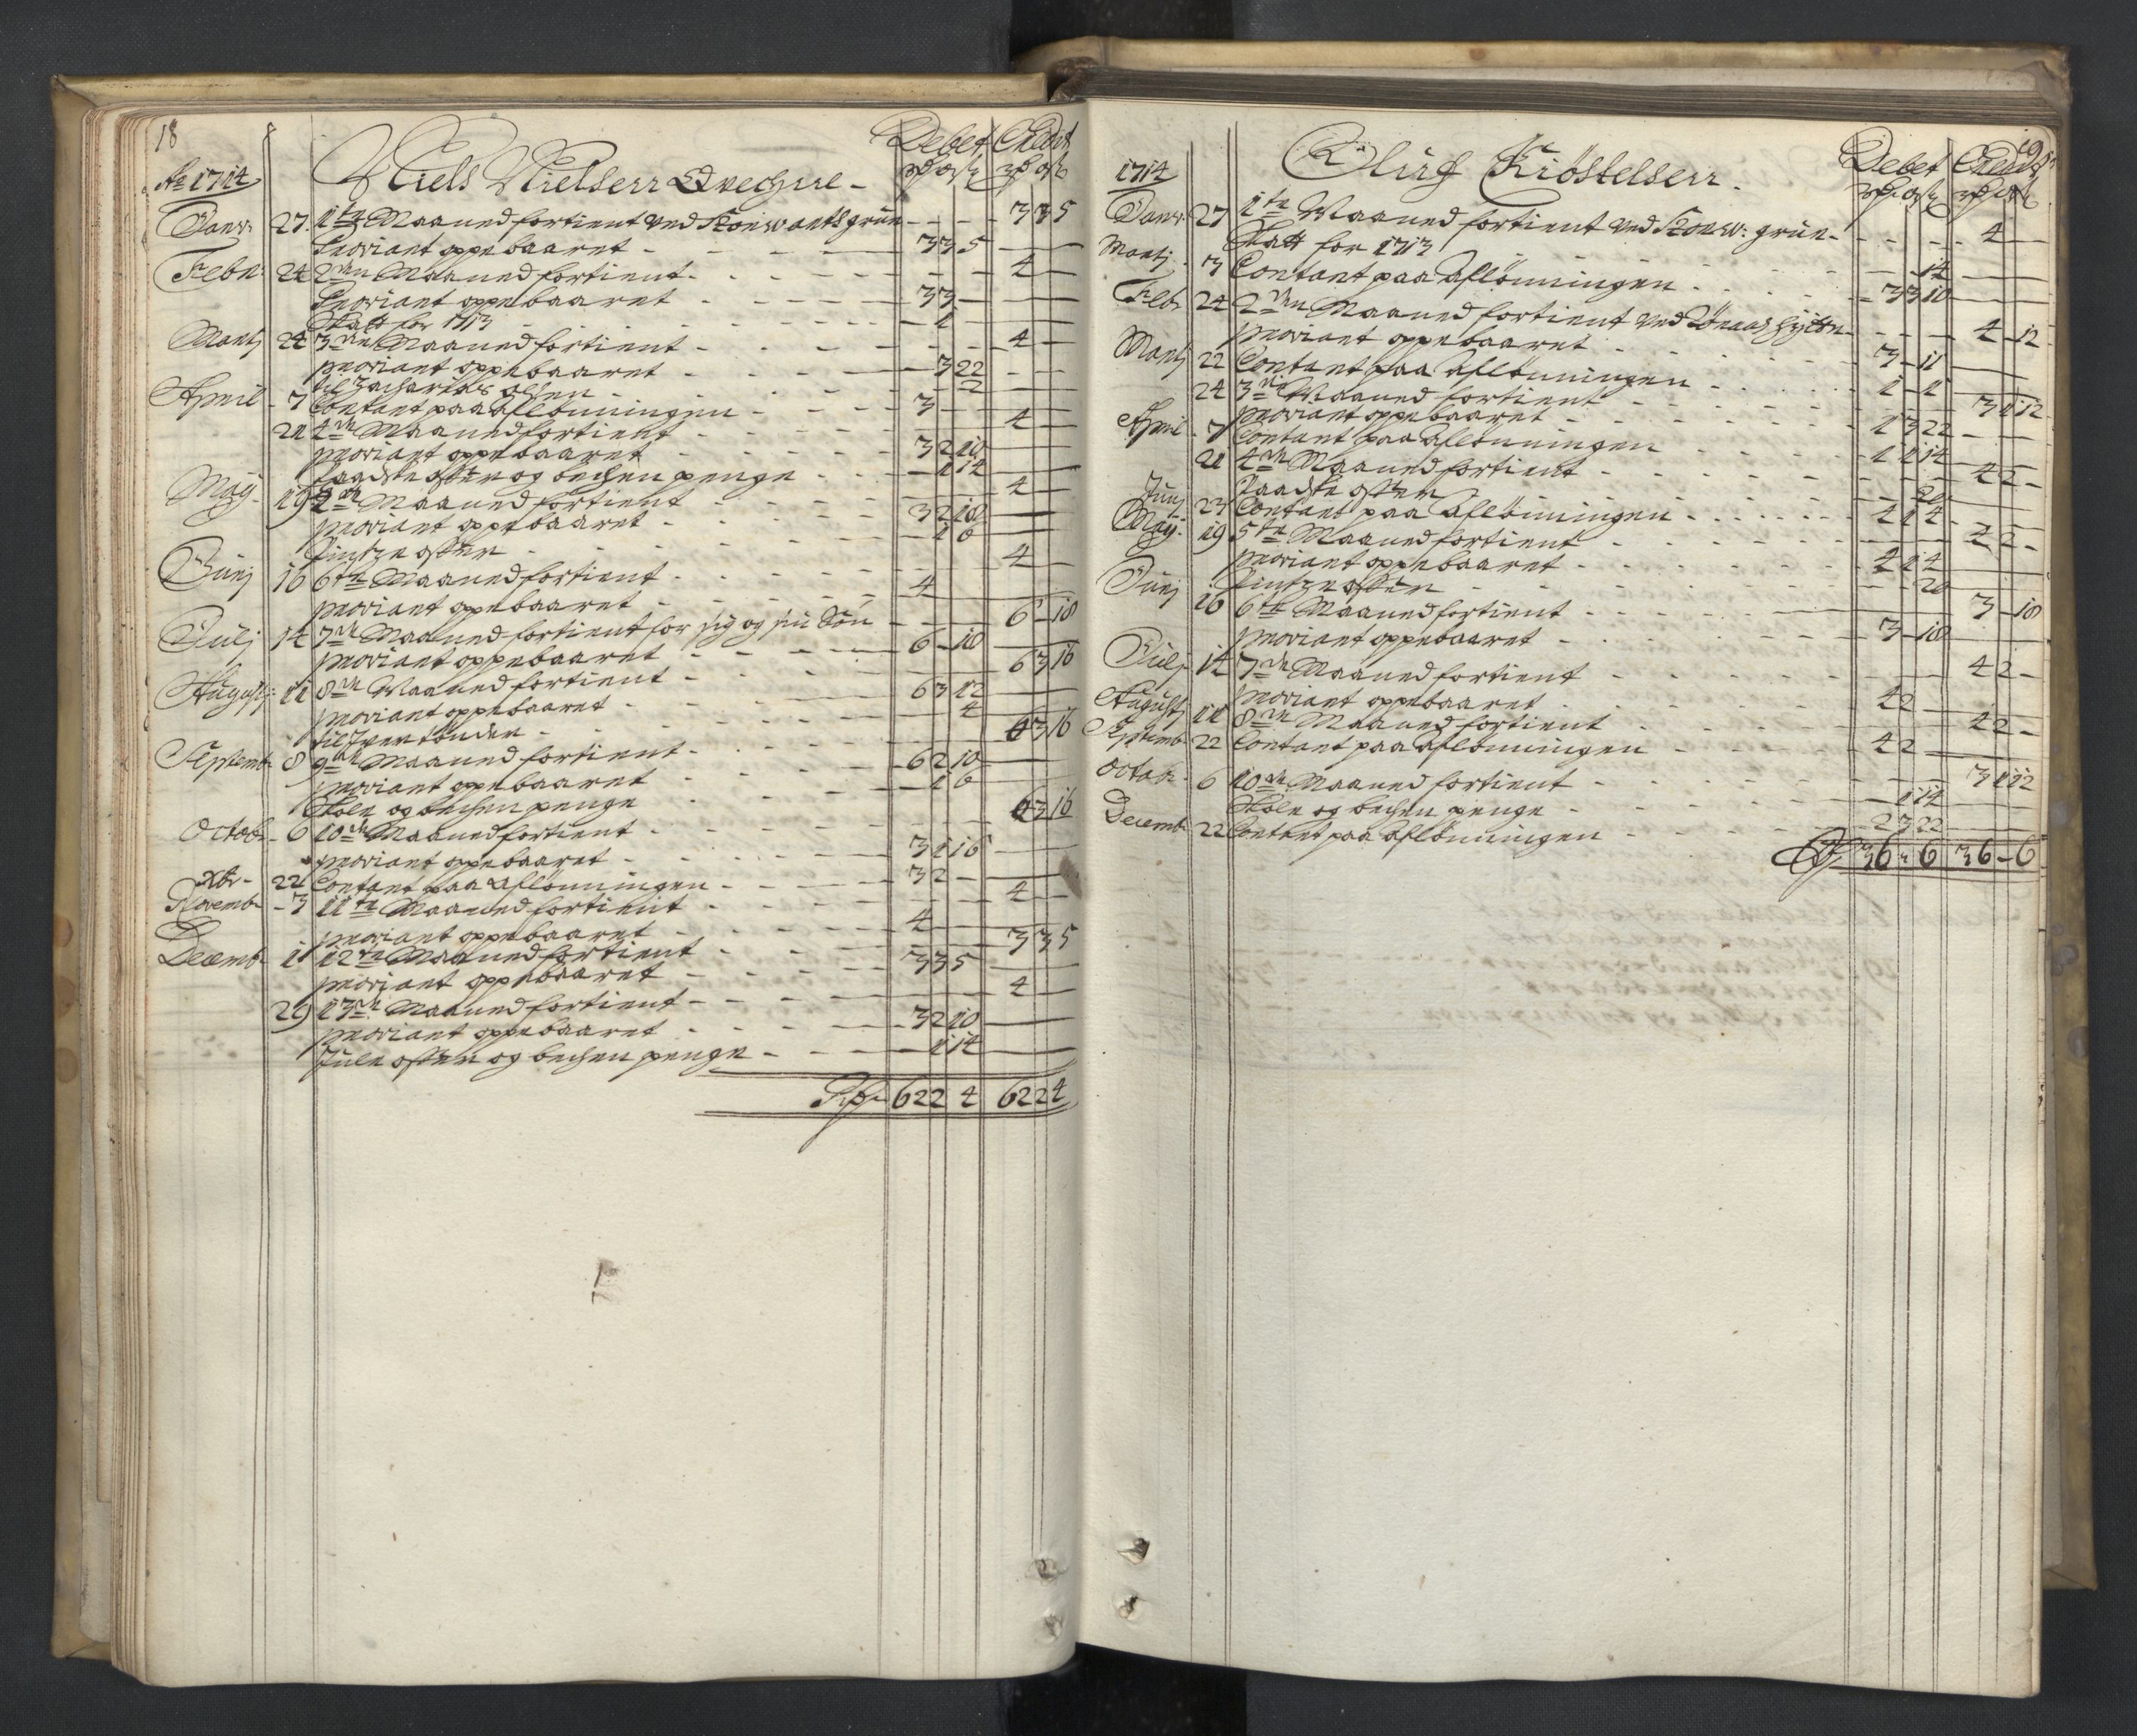 18
Ao 1714 Niels Nielsen Qvechne - Debet Credit
Janr: 27. 1te Maaned fortient ved Stoll grün - - - 3 3 5
Proviant oppebaaret - - - 3 3 5
Febr: 24 2den Maaned fortient - - - 4 -
Proviant oppebaaret - - - 3 3 -
Skatt for 1713 - - - 1
Martj 24 3die Maaned fortient - - - 4 -
Proviant oppebaaret - - - 3 22
til Zacharias Olsen - - - 2
April - 7 Contant paa Aflönningen - - - 3 -
21 4de Maaned fortient - - - 4 -
proviant oppebaaret - - - 3 2 10
Faaste offer og bechen penge - - - 1 14
Maij - 19 5te Maaned fortient - - - 4 -
proviant oppebaaret - - - 3 2 18
Pintze offer - - - 1 6
Junj 16 6te Maaned fortient - - - 4 -
proviant oppebaaret - - - 4
Julj 14 7de Maaned fortient for sig og sin Sön - - - 6 - 18
proviant oppebaaret - - - 6 - 18
Augustj: 11 8de Maaned fortient - - - 6 3 16
proviant oppebaaret - - - 6 3 12
til Iver - - - 4
Septemb: 8 9de Maaned fortient - - - 6 3 16
proviant oppebaaret - - - 6 2 10
Skole og bechen penge - - - 1 6
Octob: - 6 10de Maaned fortient - - - 6 3 16
proviant oppebaaret - - - 3 1 16
Xbr - 22 Contant paa Aflönningen - - - 3 2 -
Novemb: - 3 11te Maaned fortient - - - 4 -
proviant oppebaaret - - - 4
Decemb: 1 12te Maaned fortient - - - 3 3 5
proviant oppebaaret - - - 3 3 5
29 13de Maaned fortient - - - 4 -
proviant oppebaaret - - - 3 2 10
Jule offer og bechen penge - - - 1 14
62 2 4 62 2 4
19
1714 Oluf Kröstelsen - Debet Credit
Janr: 27 1te Maaned fortient ved Stollw: grün - - - 4 -
Skatt for 1713 - - - 14
Martj - 3 Contant paa Aflönningen - - - 3 3 10
Feb: 24 2den Maaned fortient ved Jonas Hytten - - - 4 - 12
Proviant oppebaaret - - - 3 - 11
Martj 22 Contant paa Aflönningen - - - 1 - 1
24 3die Maaned fortient - - - 3 1 12
proviant oppebaaret - - - 1 3 22
April - 7 Contant paa Aflönningen - - - 1 1 14
21 4de Maaned fortient - - - 4 2 -
Faaste offer - - - 20
Junj 23 Contant paa Aflönningen - - - 4 1 4
Maij: 19 5te Maaned fortient - - - 4 2 -
proviant oppebaaret - - - 4 1 4
Pintze offer - - - 20
Junj 16 6te Maaned fortient - - - 3 - 18
proviant oppebaaret - - - 3 - 18
Julj 14 7de Maaned fortient - - - 4 2 -
proviant oppebaaret - - - 4 2 -
Augustj 11 8de Maaned fortient - - - 4 2 -
Septemb: 22 Contant paa Aflönningen - - - 4 2 -
Octob: - 6 10de Maaned fortient - - - 3 1 12
Skole og bechen penge - - - 1 14
Decemb: 22 Contant paa Aflönningen - - - 2 3 22
36 - 6 36 - 6